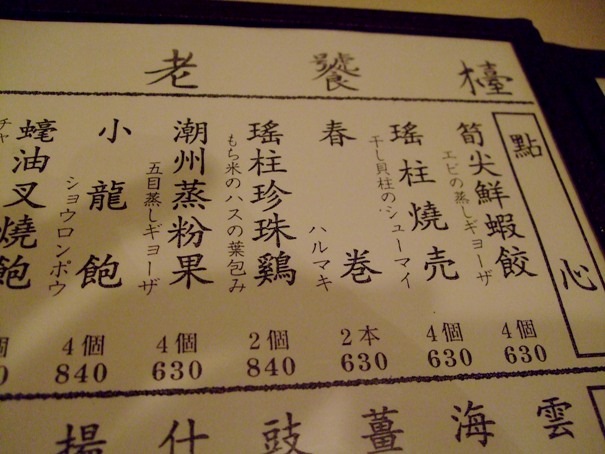 老饕檯
點心
筍尖鮮蝦餃
エビの蒸しギョーザ
4個
630
瑤柱燒売
干し貝柱のシューマイ
4個
630
春巻
ハルマキ
2本
630
瑤柱珍珠鷄
もち米のハスの葉包み
2個
840
潮州蒸粉果
五目蒸しギョーザ
4個
630
小龍飽
ショウロンポウ
4個
840
蠔油叉燒飽
チャ
個
0
雲
海
薑
豉
什
揚